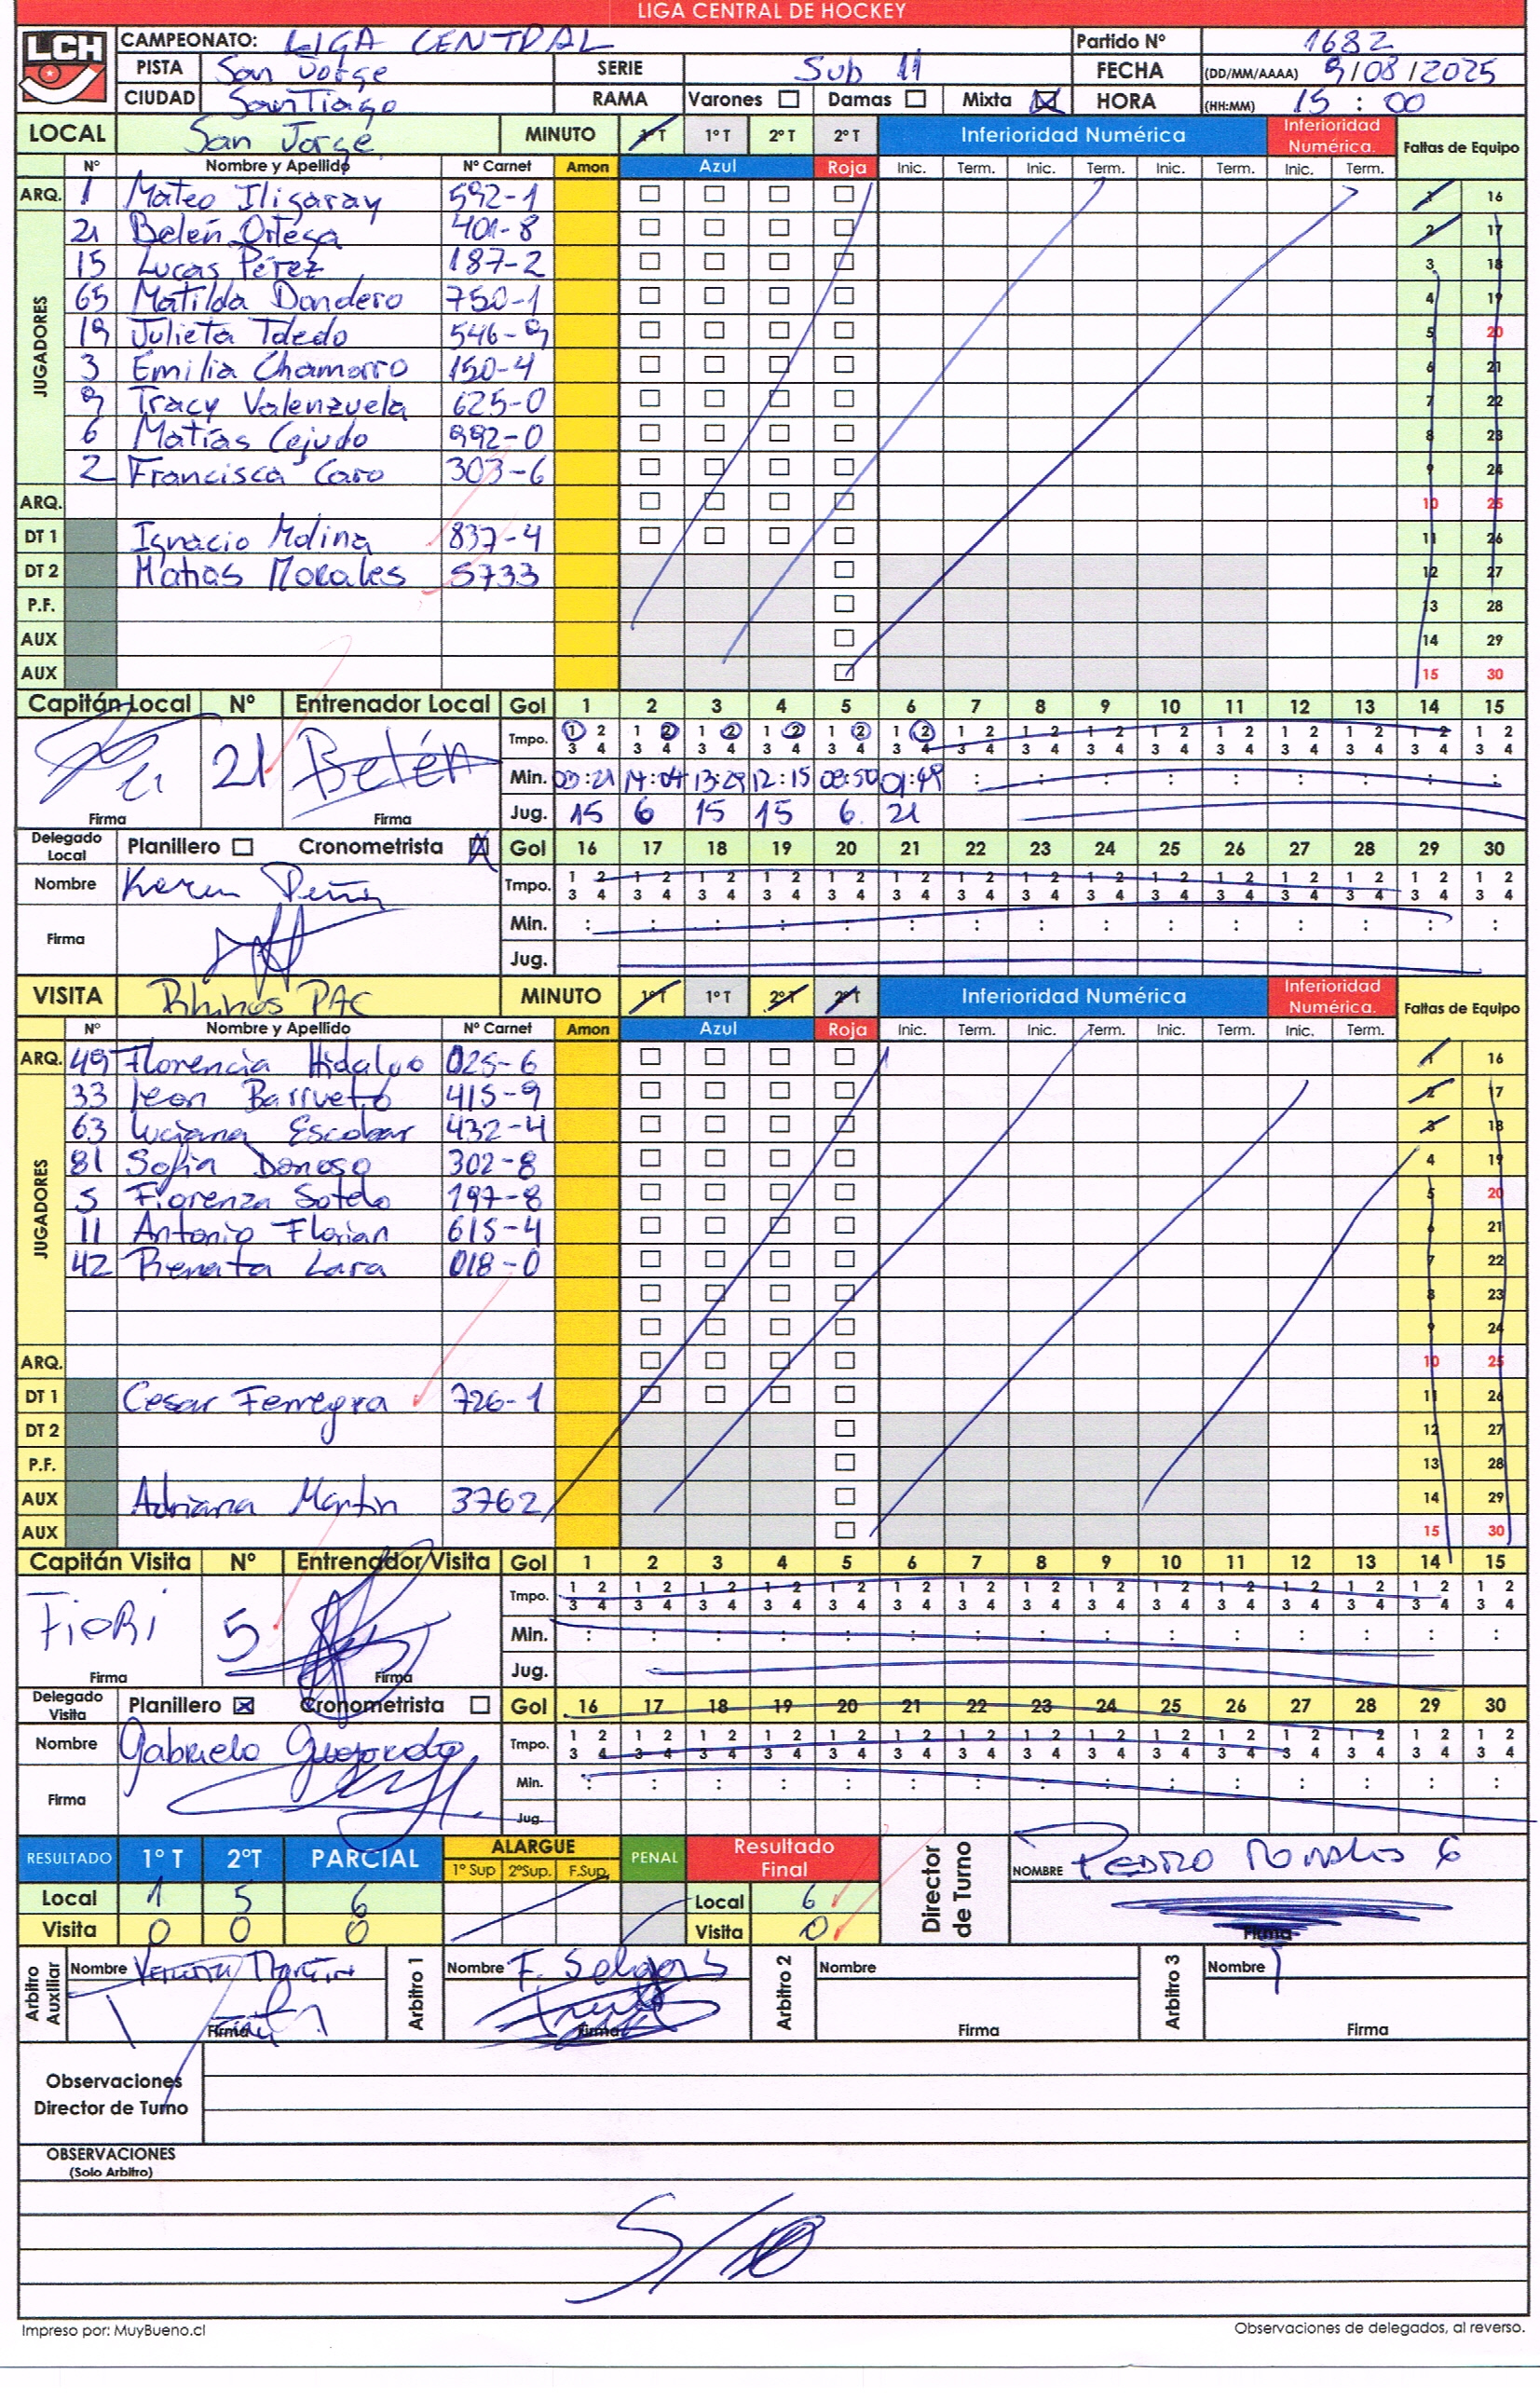 LIGA CENTRAL DE HOCKEY
LCH
CAMPEONATO: LIGA CENTRAL Partido Nº 1682
PISTA San Jorge SERIE Sub 11 FECHA (DD/MM/AAAA) 9/08/2025
CIUDAD SanTiago RAMA Varones Damas Mixta HORA (HH:MM) 15 : 00
LOCAL San Jorge MINUTO 1º T 1º T 2º T 2º T Inferioridad Numérica Inferioridad Numérica. Faltas de Equipo
Nº Nombre y Apellido Nº Carnet Amon Azul Roja Inic. Term. Inic. Term. Inic. Term. Inic. Term.
JUGADORES
ARQ. 1 Mateo Iligaray 592-1 1 16
21 Belén Ortega 401-8 2 17
15 Lucas Pérez 187-2 3 18
65 Matilda Dandero 750-1 4 19
19 Julieta Toledo 546-9 5 20
3 Emilia Chamorro 150-4 6 21
9 Tracy Valenzuela 625-0 7 22
6 Matías Cejudo 992-0 8 23
2 Francisca Caro 303-6 9 24
ARQ. 10 25
DT 1 Ignacio Molina 837-4 11 26
DT 2 Matias Morales 5733 12 27
P.F. 13 28
AUX 14 29
AUX 15 30
Capitán Local Nº Entrenador Local Gol 1 2 3 4 5 6 7 8 9 10 11 12 13 14 15
Tmpo. 1 2 1 2 1 2 1 2 1 2 1 2 1 2 1 2 1 2 1 2 1 2 1 2 1 2 1 2 1 2
3 4 3 4 3 4 3 4 3 4 3 4 3 4 3 4 3 4 3 4 3 4 3 4 3 4 3 4 3 4
21 Belén Min. 03:21 14:04 13:29 12:15 08:50 01:49 : : : : : : : : :
Firma Firma Jug. 15 6 15 15 6 21
Delegado Local Planillero Cronometrista Gol 16 17 18 19 20 21 22 23 24 25 26 27 28 29 30
Nombre Karen Peña Tmpo. 1 2 1 2 1 2 1 2 1 2 1 2 1 2 1 2 1 2 1 2 1 2 1 2 1 2 1 2 1 2
3 4 3 4 3 4 3 4 3 4 3 4 3 4 3 4 3 4 3 4 3 4 3 4 3 4 3 4 3 4
Firma Min. : : : : : : : : : : : : : : :
Jug.
VISITA Rhinos PAC MINUTO 1º T 1º T 2º T 2º T Inferioridad Numérica Inferioridad Numérica. Faltas de Equipo
Nº Nombre y Apellido Nº Carnet Amon Azul Roja Inic. Term. Inic. Term. Inic. Term. Inic. Term.
JUGADORES
ARQ. 49 Florencia Hidalgo 025-6 1 16
33 Leon Barrueto 415-9 2 17
63 Luciana Escobar 432-4 3 18
81 Sofia Donoso 302-8 4 19
5 Fiorenza Sotelo 197-8 5 20
11 Antonio Florian 615-4 6 21
42 Renata Lara 018-0 7 22
8 23
9 24
ARQ. 10 25
DT 1 Cesar Ferreyra 726-1 11 26
DT 2 12 27
P.F. 13 28
AUX Adriana Martin 3762 14 29
AUX 15 30
Capitán Visita Nº Entrenador Visita Gol 1 2 3 4 5 6 7 8 9 10 11 12 13 14 15
Tmpo. 1 2 1 2 1 2 1 2 1 2 1 2 1 2 1 2 1 2 1 2 1 2 1 2 1 2 1 2 1 2
3 4 3 4 3 4 3 4 3 4 3 4 3 4 3 4 3 4 3 4 3 4 3 4 3 4 3 4 3 4
FioRi 5 Min. : : : : : : : : : : : : : : :
Firma Firma Jug.
Delegado Visita Planillero Cronometrista Gol 16 17 18 19 20 21 22 23 24 25 26 27 28 29 30
Nombre Gabriela Tmpo. 1 2 1 2 1 2 1 2 1 2 1 2 1 2 1 2 1 2 1 2 1 2 1 2 1 2 1 2 1 2
3 4 3 4 3 4 3 4 3 4 3 4 3 4 3 4 3 4 3 4 3 4 3 4 3 4 3 4 3 4
Firma Min. : : : : : : : : : : : : : : :
Jug.
RESULTADO 1º T 2ºT PARCIAL ALARGUE 1º Sup 2ºSup. F.Sup. PENAL Resultado Final Director de Turno NOMBRE PEDRO Morales G
Local 1 5 6 Local 6
Visita 0 0 0 Visita 0 Firma
Arbitro Auxiliar Nombre Martin Arbitro 1 Nombre F. Arbitro 2 Nombre Arbitro 3 Nombre
Firma Firma Firma Firma
Observaciones
Director de Turno
OBSERVACIONES
(Solo Arbitro)
S/O
Impreso por: MuyBueno.cl Observaciones de delegados, al reverso.